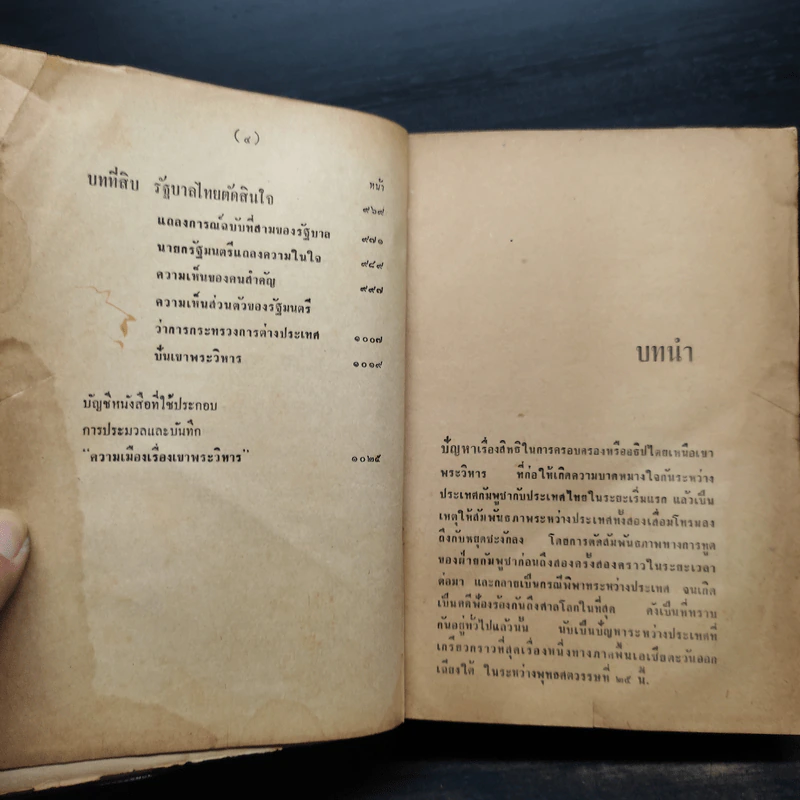 (๔)
หน้า
บทที่สิบ รัฐบาลไทยตัดสินใจ ๙๖๙
แถลงการณ์ฉบับที่สามของรัฐบาล ๙๗๑
นายกรัฐมนตรีแถลงความในใจ ๙๘๙
ความเห็นของคนสำคัญ ๙๙๗
ความเห็นส่วนตัวของรัฐมนตรี
ว่าการกระทรวงการต่างประเทศ ๑๐๐๗
ปั้นเขาพระวิหาร ๑๐๑๙
บัญชีหนังสือที่ใช้ประกอบ
การประมวลและบันทึก
"ความเมืองเรื่องเขาพระวิหาร" ๑๐๒๕
บทนำ
ปัญหาเรื่องสิทธิในการครอบครองหรืออธิปไตยเหนือเขา
พระวิหาร ที่ก่อให้เกิดความบาดหมางใจกันระหว่าง
ประเทศกัมพูชากับประเทศไทยในระยะเริ่มแรก แล้วเป็น
เหตุให้สัมพันธภาพระหว่างประเทศทั้งสองเสื่อมโทรมลง
ถึงกับหยุดชะงักลง โดยการตัดสัมพันธภาพทางการทูต
ของฝ่ายกัมพูชาก่อนถึงสองครั้งสองคราวในระยะเวลา
ต่อมา และกลายเป็นกรณีพิพาทระหว่างประเทศ จนเกิด
เป็นคดีฟ้องร้องกันถึงศาลโลกในที่สุด ดังเป็นที่ทราบ
กันอยู่ทั่วไปแล้วนั้น นับเป็นปัญหาระหว่างประเทศที่
เกรียวกราวที่สุดเรื่องหนึ่งทางภาคพื้นเอเชียตะวันออก
เฉียงใต้ ในระหว่างพุทธศตวรรษที่ ๒๕ นี้.